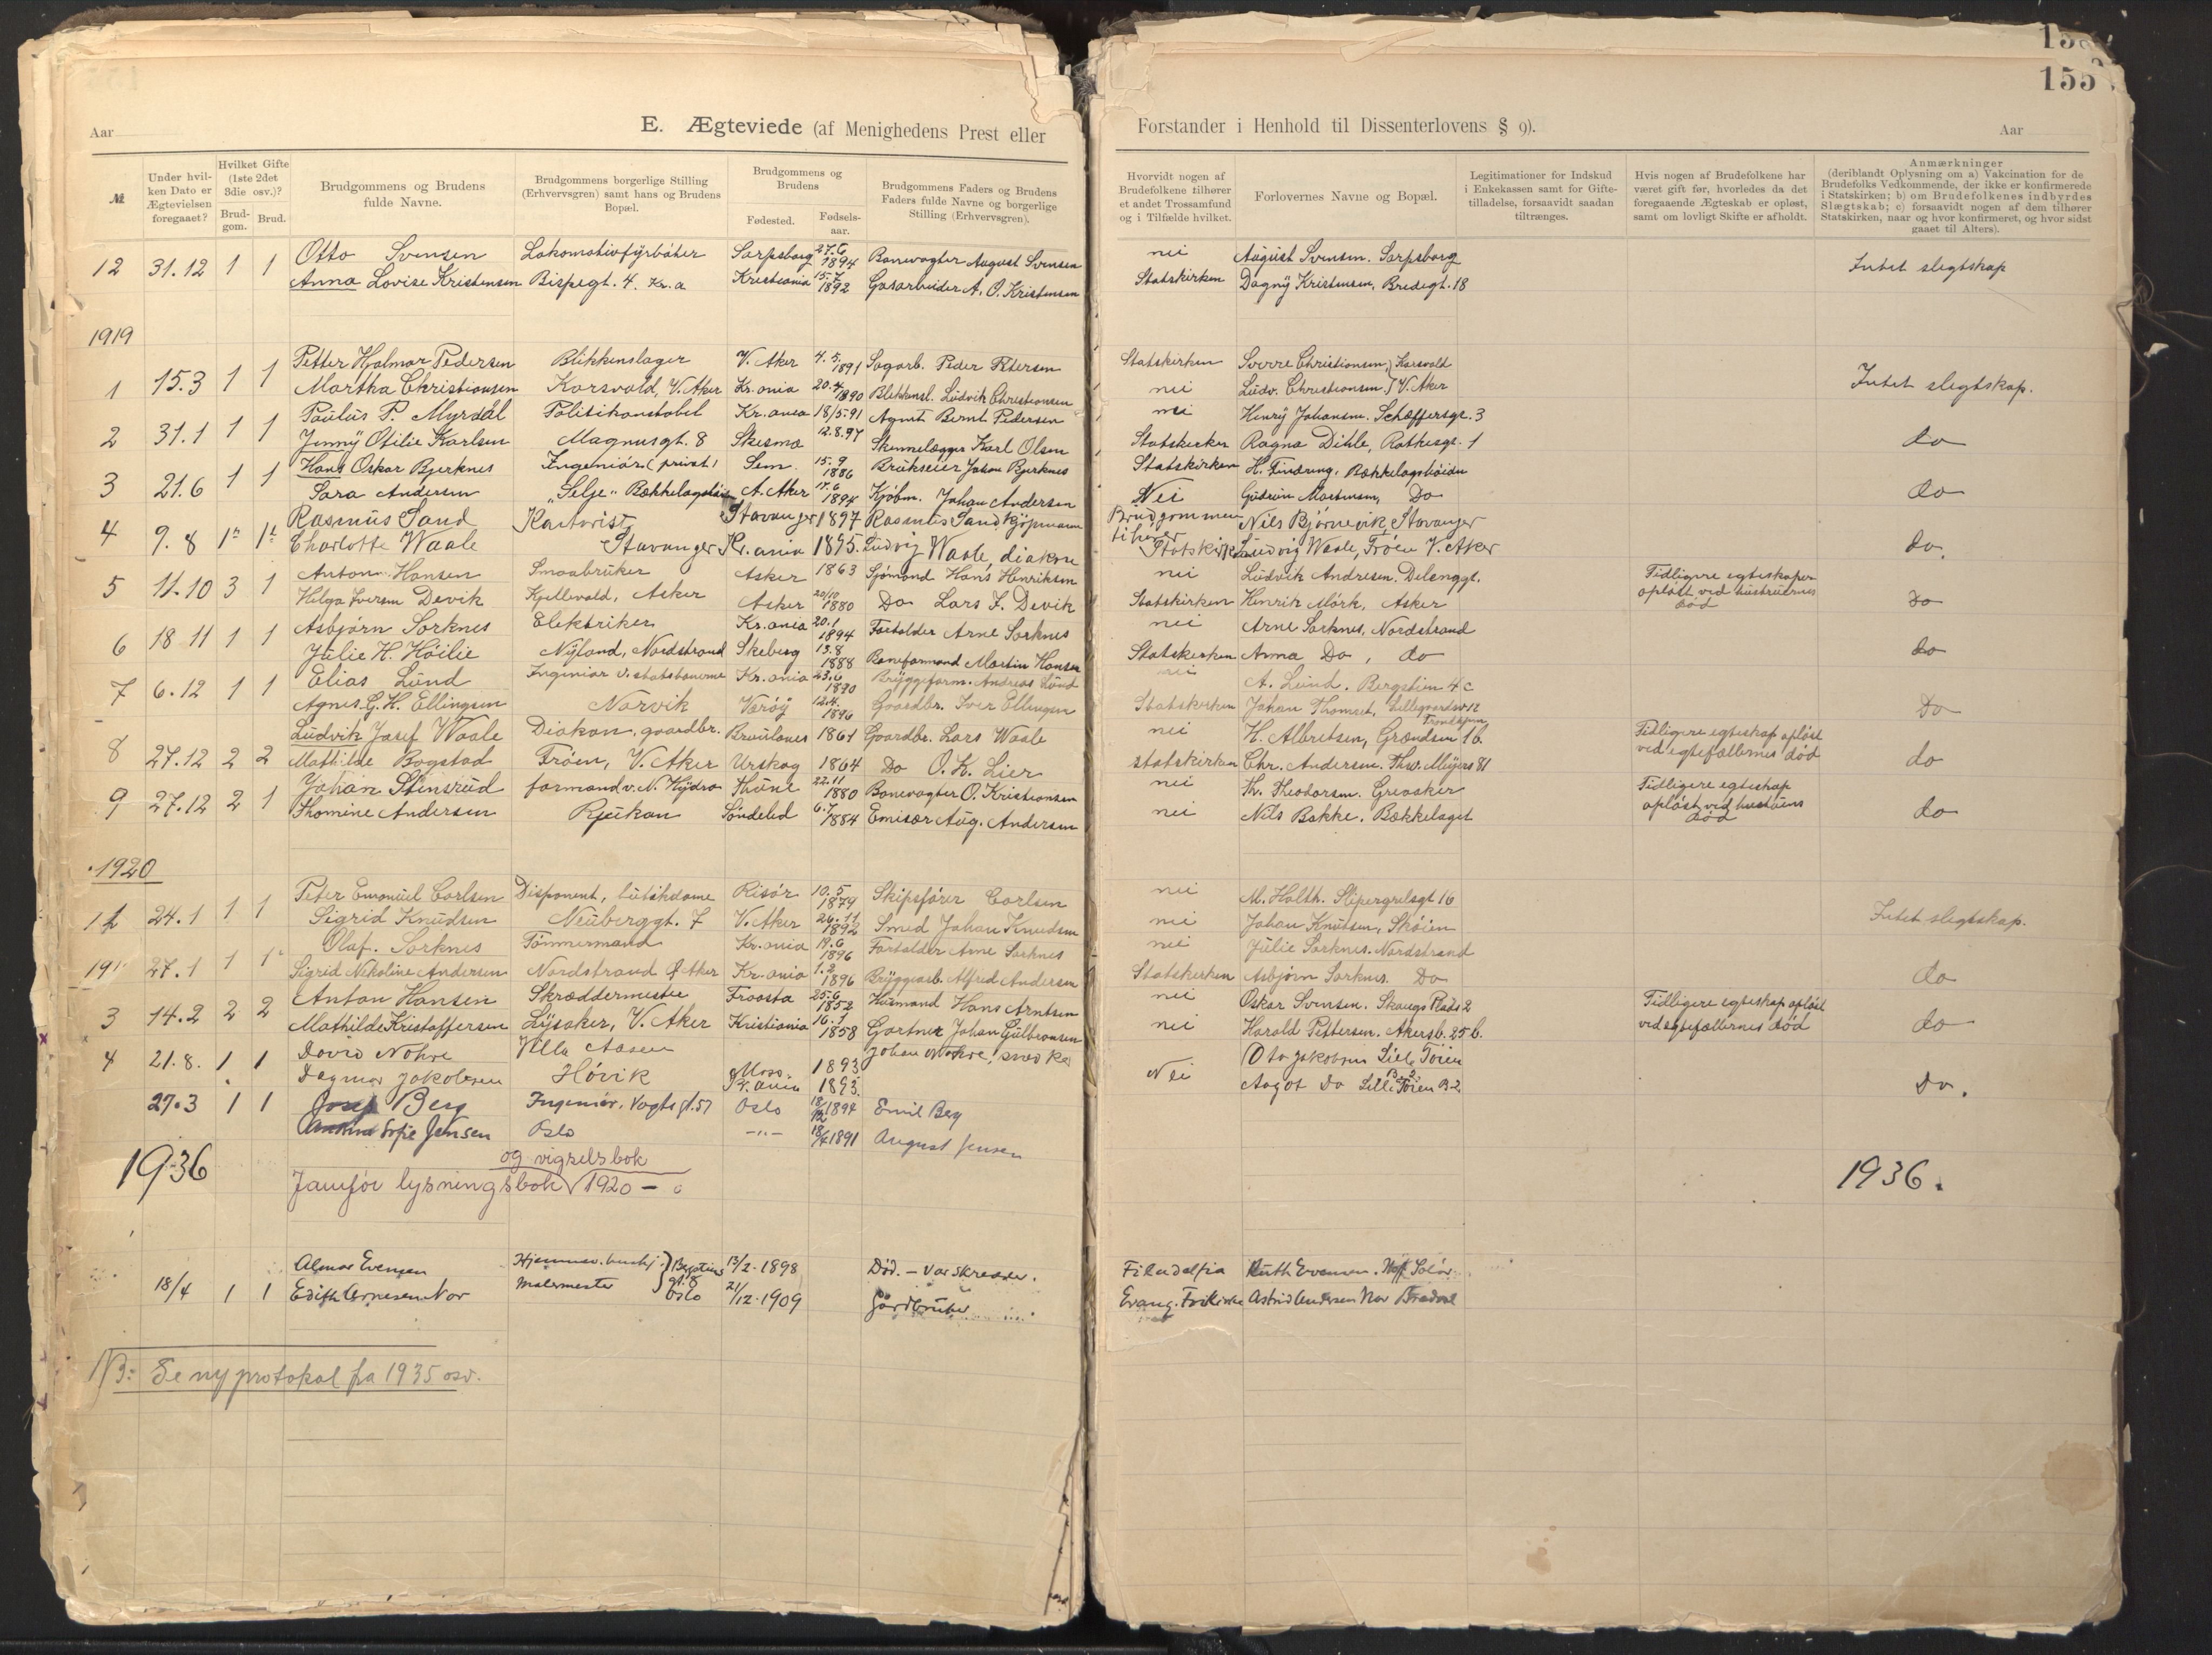 155
Aar
E. Ægteviede (af Menighedens Prest eller
Forstander i Henhold til Dissenterlovens § 9).
Aar
№
Under hvil-
ken Dato er
Ægtevielsen
foregaaet?
Hvilket Gifte
(1ste 2det
3die osv.)?
Brud-
gom.
Brud.
Brudgommens og Brudens
fulde Navne.
Brudgommens borgerlige Stilling
(Erhvervsgren) samt hans og Brudens
Bopæl.
Brudgommens og
Brudens
Fødested.
Fødsels-
aar.
Brudgommens Faders og Brudens
Faders fulde Navne og borgerlige
Stilling (Erhvervsgren).
Hvorvidt nogen af
Brudefolkene tilhører
et andet Trossamfund
og i Tilfælde hvilket.
Forlovernes Navne og Bopæl.
Legitimationer for Indskud
i Enkekassen samt for Gifte-
tilladelse, forsaavidt saadan
tiltrænges.
Hvis nogen af Brudefolkene har
været gift før, hvorledes da det
foregaaende Ægteskab er opløst,
samt om lovligt Skifte er afholdt.
Anmærkninger
(deriblandt Oplysning om a) Vakcination for de
Brudefolks Vedkommende, der ikke er konfirmerede
i Statskirken; b) om Brudefolkenes indbyrdes
Slægtskab; c) forsaavidt nogen af dem tilhører
Statskirken, naar og hvor konfirmeret, og hvor sidst
gaaet til Alters).
12 31.12 1 1 Otto Svensen Lokomotivfyrbøter Sarpsborg 27.6 1894 Banevogter August Svensen nei August Svensen. Sarpsborg Intet slegtskap
Anna Lovise Kristensen Bispegt. 4. Kr.a Kristiania 15.7 1892 Gasarbeider A. O. Kristensen Statskirken Dagny Kristensen, Bredegt. 18
1919
1 15.3 1 1 Petter Hjalmar Pedersen Blikkenslager V. Aker 4.5. 1891 Sagarb. Peder Petersen Statskirken Sverre Christiansen, Korsvold Intet slegtskap.
Martha Christiansen Korsvold, V. Aker Kr.ania 20.4 1890 Blikkensl. Ludvik Christiansen nei Ludv. Christiansen V. Aker
2 31.1 1 1 Paulus P. Myrdal Politikonstabel Kr.ania 18/5.91 Agent Bernt Pedersen nei Henry Johansen. Schæffersgt. 3 do
Jenny Otilie Karlsen Magnusgt. 8 12.8.97 Skinnelægger Karl Olsen Statskirken Ragna Dihle, Rathesgt. 1
3 21.6 1 1 Hans Oskar Bjerknes Ingeniør (privat) Sem 15.9 1886 Brukseier Johan Bjerknes Statskirken H. Finborg, Bækkelagshøiden do
Sara Andersen "Selje" A. Aker 17.6 1894 Kjøbm. Johan Andersen Nei Gudrun Martinsen, Do
4 9.8 1 1 Rasmus Sand Kontorist Stavanger 1897 Rasmus Sand, kjøpmann Brudgommen tilhører Nils Bjørnevik, Stavanger do.
Charlotte Waale Stavanger Kr.ania 1895. Ludvig Waale, diakon Statskirken Ludvig Waale, Frøen V. Aker
5 11.10 3 1 Anton Hansen Smaabruker Asker 1863 Sjømand Hans Henriksen nei Ludvik Andresen. Delenggt. Tidligere egteskaper
opløst ved hustruernes
død Do
Helga Iversen Devik Kjellevold, Asker Asker 20/10 1880 Do Lars I. Devik Statskirken Henrik Mørk, Asker
6 18 11 1 1 Asbjørn Sørknes Elektriker Kr.ania 20.1 1894 Forvalter Arne Sorknes nei Arne Sorknes, Nordstrand do
Julie H. Høilie Nyland, Nordstrand Skeberg 13.8 1888 Baneformand Martin Hansen Statskirken Anna Do, do
7 6.12 1 1 Elias Lund Ingeniør v. statsbanerne Kr.ania 23.6 1890 Bryggeform. Andreas Lund nei A. Lund. Bergstien 4c Do
Agnes G. H. Ellingsen Narvik Værøy 12.4. 1896 Gaardbr. Iver Ellingsen Statskirken Johan Thomset, Lillegaardsv 12 Trondhjem
8 27.12 2 2 Ludvik Josef Waale Diakon, gaardbr. 1861 Gaardbr. Lars Waale nei H. Albretsen, Grændsen 16. Tidligere egteskap opløst
ved egtefællernes død do
Mathilde Bogstad Frøen, V. Aker Urskog 1864 Do O. K. Lier statskirken Chr. Andersen. Thv. Meyers 81
9 27.12 2 1 Johan Stensrud formand v. N. Hydro Thune 22.11 1880 Banevogter O. Kristiansen nei Th. Theodorsen. Greaker Tidligere egteskap
opløst ved hustruens
død do
Thomine Andersen Rjukan Søndeled 6.7 1884 Emisær Aug. Andersen nei Nils Bakke. Bækkelaget
1920
1 24.1 1 1 Peter Emanuel Carlsen Disponent, butikdame Risør 10.5 1879 Skipsfører Carlsen nei M. Holth. Slipergrelsgt 16 Intet slegtskap.
Sigrid Knudsen Neuberggt. 7 V. Aker 26.11 1892 Smed Johan Knudsen nei Johan Knutsen, Skøien
27.1 1 1 Olaf. Sorknes Tømmermand Kr.ania 19.6 1896 Forvalter Arne Sorknes nei Julie Sorknes. Nordstrand do
Sigrid Nikoline Andersen Nordstrand Ø Aker Kr.ania 1.2 1896 Bryggearb. Alfred Andersen Statskirken Asbjørn Sorknes. Do
3 14.2 2 2 Anton Hansen Skræddermester Froosta 25.6 1852 Husmand Hans Arntsen nei Oskar Svensen. Skaugs Plads 2 Tidligere egteskap opløst
ved egtefællernes død do
Mathilde Kristoffersen Lysaker, V. Aker Kristiania 16.1 1858 Gartner Johan Gulbransen nei Harald Pettersen. Akersb. 25 b.
4 21.8. 1 1 David Nohre Villa Aasen Moss. 1893 Johan Nohre, smed Nei Otto Jakobsen Lille Tøien Do.
Dagmar Jakobsen Høvik Kr.ania 1893. Aagot Do Lille Tøien B-2
27.3 1 1 Josef Berg Ingeniør, Vogts gt. 57 Oslo 18/12 1894 Emil Berg
Sofie Jensen Oslo –"– 18/4 1891 August Jensen
1936
og vigselsbok
Jamfør lysningsbok 1920 –
1936.
18/4 1 1 Almar Evensen Bergstiens gt. 8 Oslo 13/2-1898 Død. – var skredder. Filadelfia Ruth Evensen. Hof Solør
Edith Arnesen Nor Malermester 21/12-1909 Gårdbruker Evang. Frikirke Astrid Andersen Nor
NB: Se ny protokol fra 1935 osv.